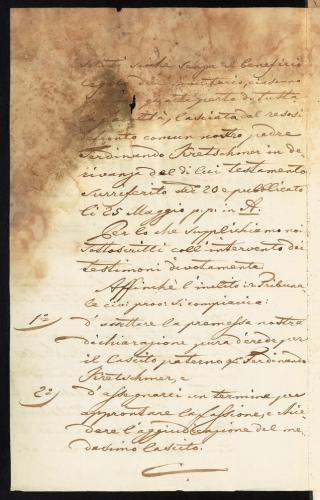 sotto simile sempre il beneficio
legale dell'inventario, ciascuno
quarta parte di tutta
lasciata al
defunto comun nostro padre
Ferdinando Kretschmer in de-
rivanza del di lui testamento
surreferito del 20 e pubblicato
li 25 Maggio p.p. in A.
Per lo che supplichiamo noi
sottoscritti coll'intervento dei
testimoni divotamente
Affinchè l'inclito i: r: Tribuna-
le civ: prov: si compiaccia:
1º d'accettare la premessa nostra
dichiarazione pura d'erede per
il Lascito paterno qm Ferdinando
Kretschmer, e
2º d'assegnarci un termine per
approntare la fassione, e chie-
dere l'aggiudicazione del me-
desimo lascito.